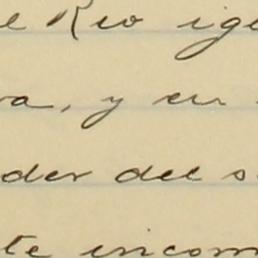 e Rio ige
va, y en
der del s
te incom